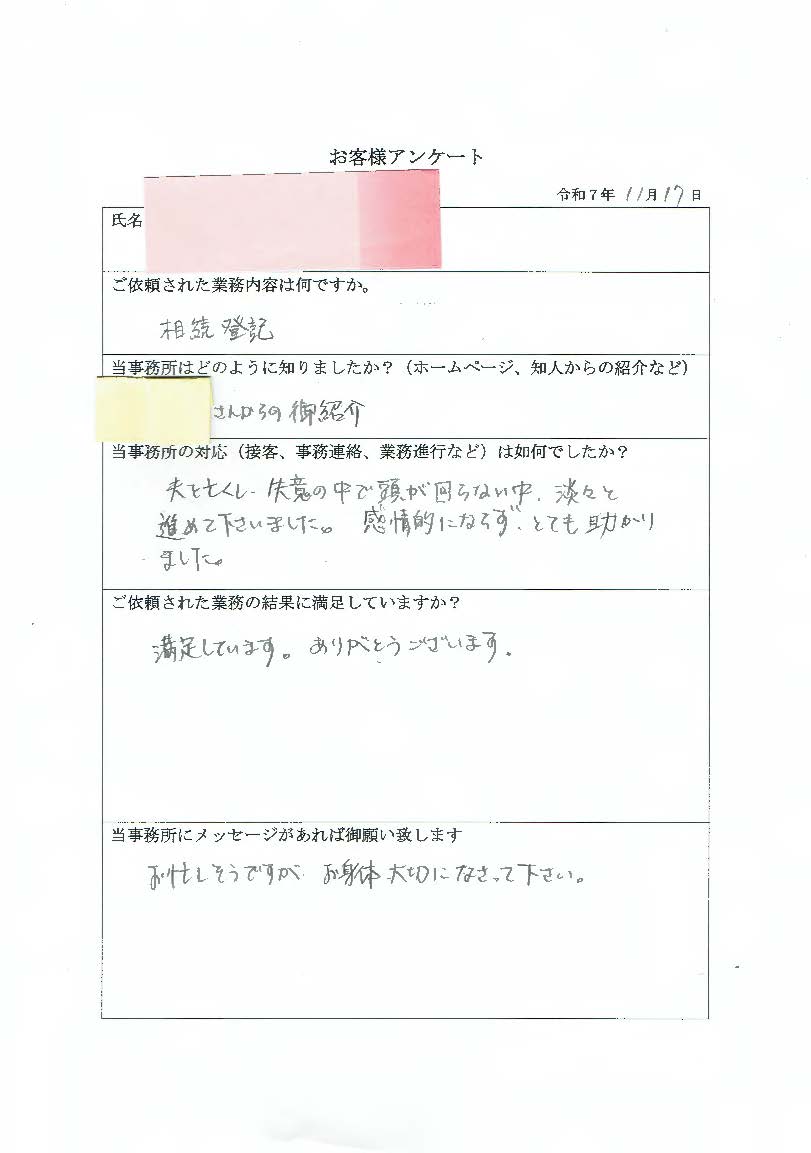 お客様アンケート
令和7年 11月17日
氏名
ご依頼された業務内容は何ですか。
相続登記
当事務所はどのように知りましたか?(ホームページ、知人からの紹介など)
さんからの御紹介
当事務所の対応(接客、事務連絡、業務進行など)は如何でしたか?
夫を亡くし、失意の中で頭が回らない中、淡々と
進めて下さいました。感情的にならず、とても助かり
ました。
ご依頼された業務の結果に満足していますか?
満足しています。ありがとうございます。
当事務所にメッセージがあれば御願い致します
お忙しそうですが、お身体大切になさって下さい。